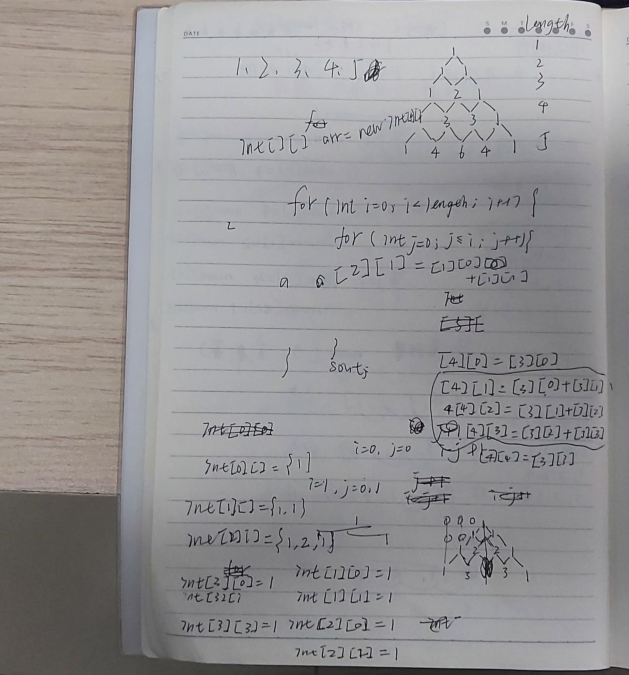 DATE
S M
Length
1、2、3、4、5
1
2
3
4
5
1
1 2 1
1 3 3 1
1 4 6 4 1
int[][] arr = new int[][]
for (int i=0; i<length; i++) {
2
for (int j=0; j≤i; j++){
a a [2][1] = [1][0]
+[1][1]
}
}
sout;
[4][0] = [3][0]
[4][1] = [3][0]+[3][1]
4[4][2] = [3][1]+[3][2]
[4][3] = [3][2]+[3][3]
i=0, j=0
[4][4] = [3][3]
int[0][] = {1}
i=1, j=0,1
int[1][] = {1,1}
int[2][] = {1,2,1}
1
1
0 0 0
0 0
1 3 3 1
int[3][0] = 1 int[1][0] = 1
int[3][ int[1][1] = 1
int[3][3] = 1 int[2][0] = 1
int[2][2] = 1